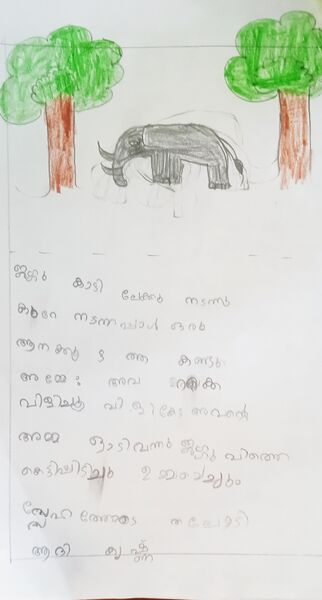 ജഗ്ഗു കാട്ടി ലേക്കു നടന്നു
കുറേ നടന്നപ്പോൾ ഒരു
ആനക്കൂ ട്ട ത്തെ കണ്ടു
അമ്മേ : അവ
വിളിച്ചു വി ളി കേട്ട അവന്റെ
അമ്മ ഓടിവന്നു ജഗ്ഗു വിനെ
കെട്ടിപിടിച്ചും ഉ മ്മവെച്ചും
സ്നേഹ ത്തോടെ തലോടി
ആദി കൃഷ്ണ